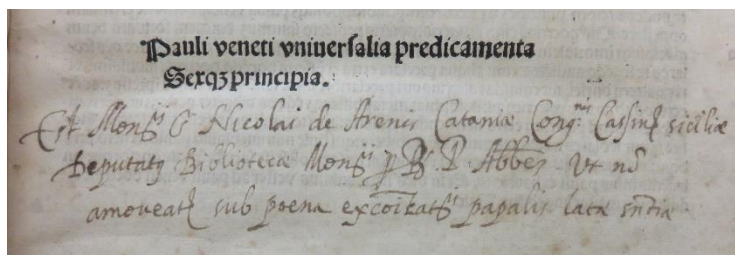 Pauli veneti vniuersalia predicamenta
Sexqꝫ principia.
Est Monrij S Nicolai de Arenis Cataniæ Congnis Cassinẽ siciliæ
Deputatꝯ Bibliotecæ Monrij ꝑ R. P. Abbẽ Vt nõ
amoveatr sub poena excõicatnis papalis latæ sñtiæ